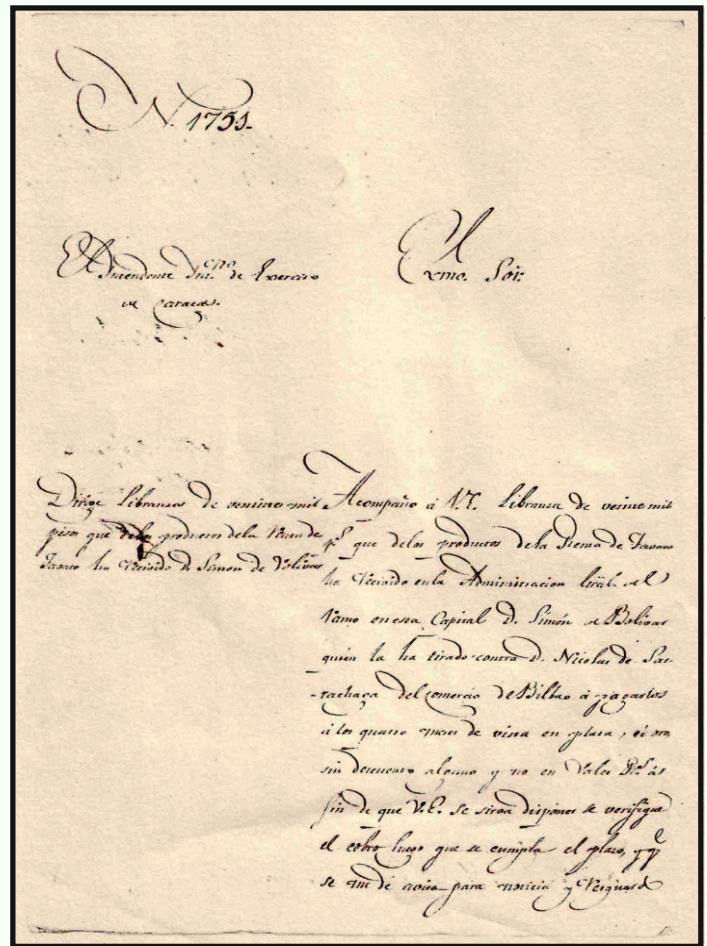 N. 1751.
El Intendente Int.no de Exercito
de Caracas.
Exmo. Sõr.
Dirige Libranza de veinte mil
pesos que delos productos dela Renta de
Tavaco ha Recivido d. Simon de Volivar
Acompaño á V.E. Libranza de veinte mil
p.s que delos productos dela Renta de Tavaco
ha Recivido enla Administracion Grãl. del
Ramo en esta Capital D. Simón de Bolivar
quien la ha tirado contra D. Nicolas de Sar-
-rachaga del comercio de Bilbao á pagarlos
á los quatro meses de vista en plata, ú oro
sin descuento alguno y no en Vales R.s á
fin de que V.E. se sirva disponer se verifique
el cobro luego que se cumpla el plazo, y q.e
se me dé aviso para noticia y Resguardo